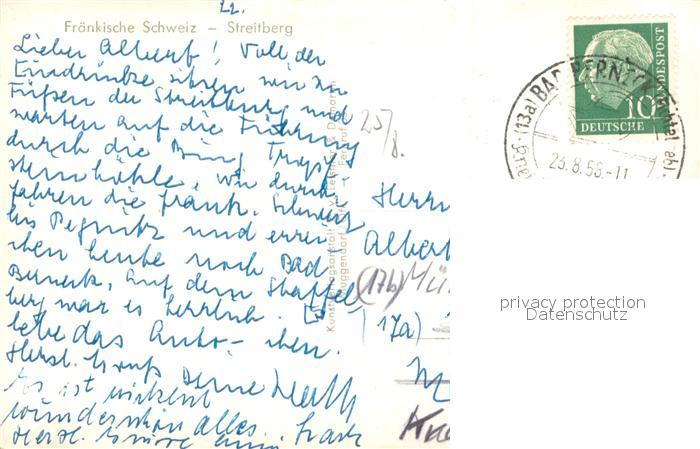 22.
Fränkische Schweiz – Streitberg
Lieber Albert! Voll der
Eindrücke sitzen wir zu
Füßen der Streitburg und
warten auf die Führung
durch die Bing Tropf-
steinhöhle. Wir durch-
fahren die fränk. Schweiz
bis Pegnitz und errei-
chen heute noch Bad
Berneck. Auf dem Staffel-
berg war es herrlich. Es
lebe das Auto-chen.
Herzl. Gruß Deine
Es ist wirklich
wunderschön alles.
Herzl. Grüße
25/8.
Herrn
Albert
(17b) Mü
(17a)
M
BAD BERNECK
(13a)
23.8.56.-11
10
DEUTSCHE
BUNDESPOST
privacy protection
Datenschutz